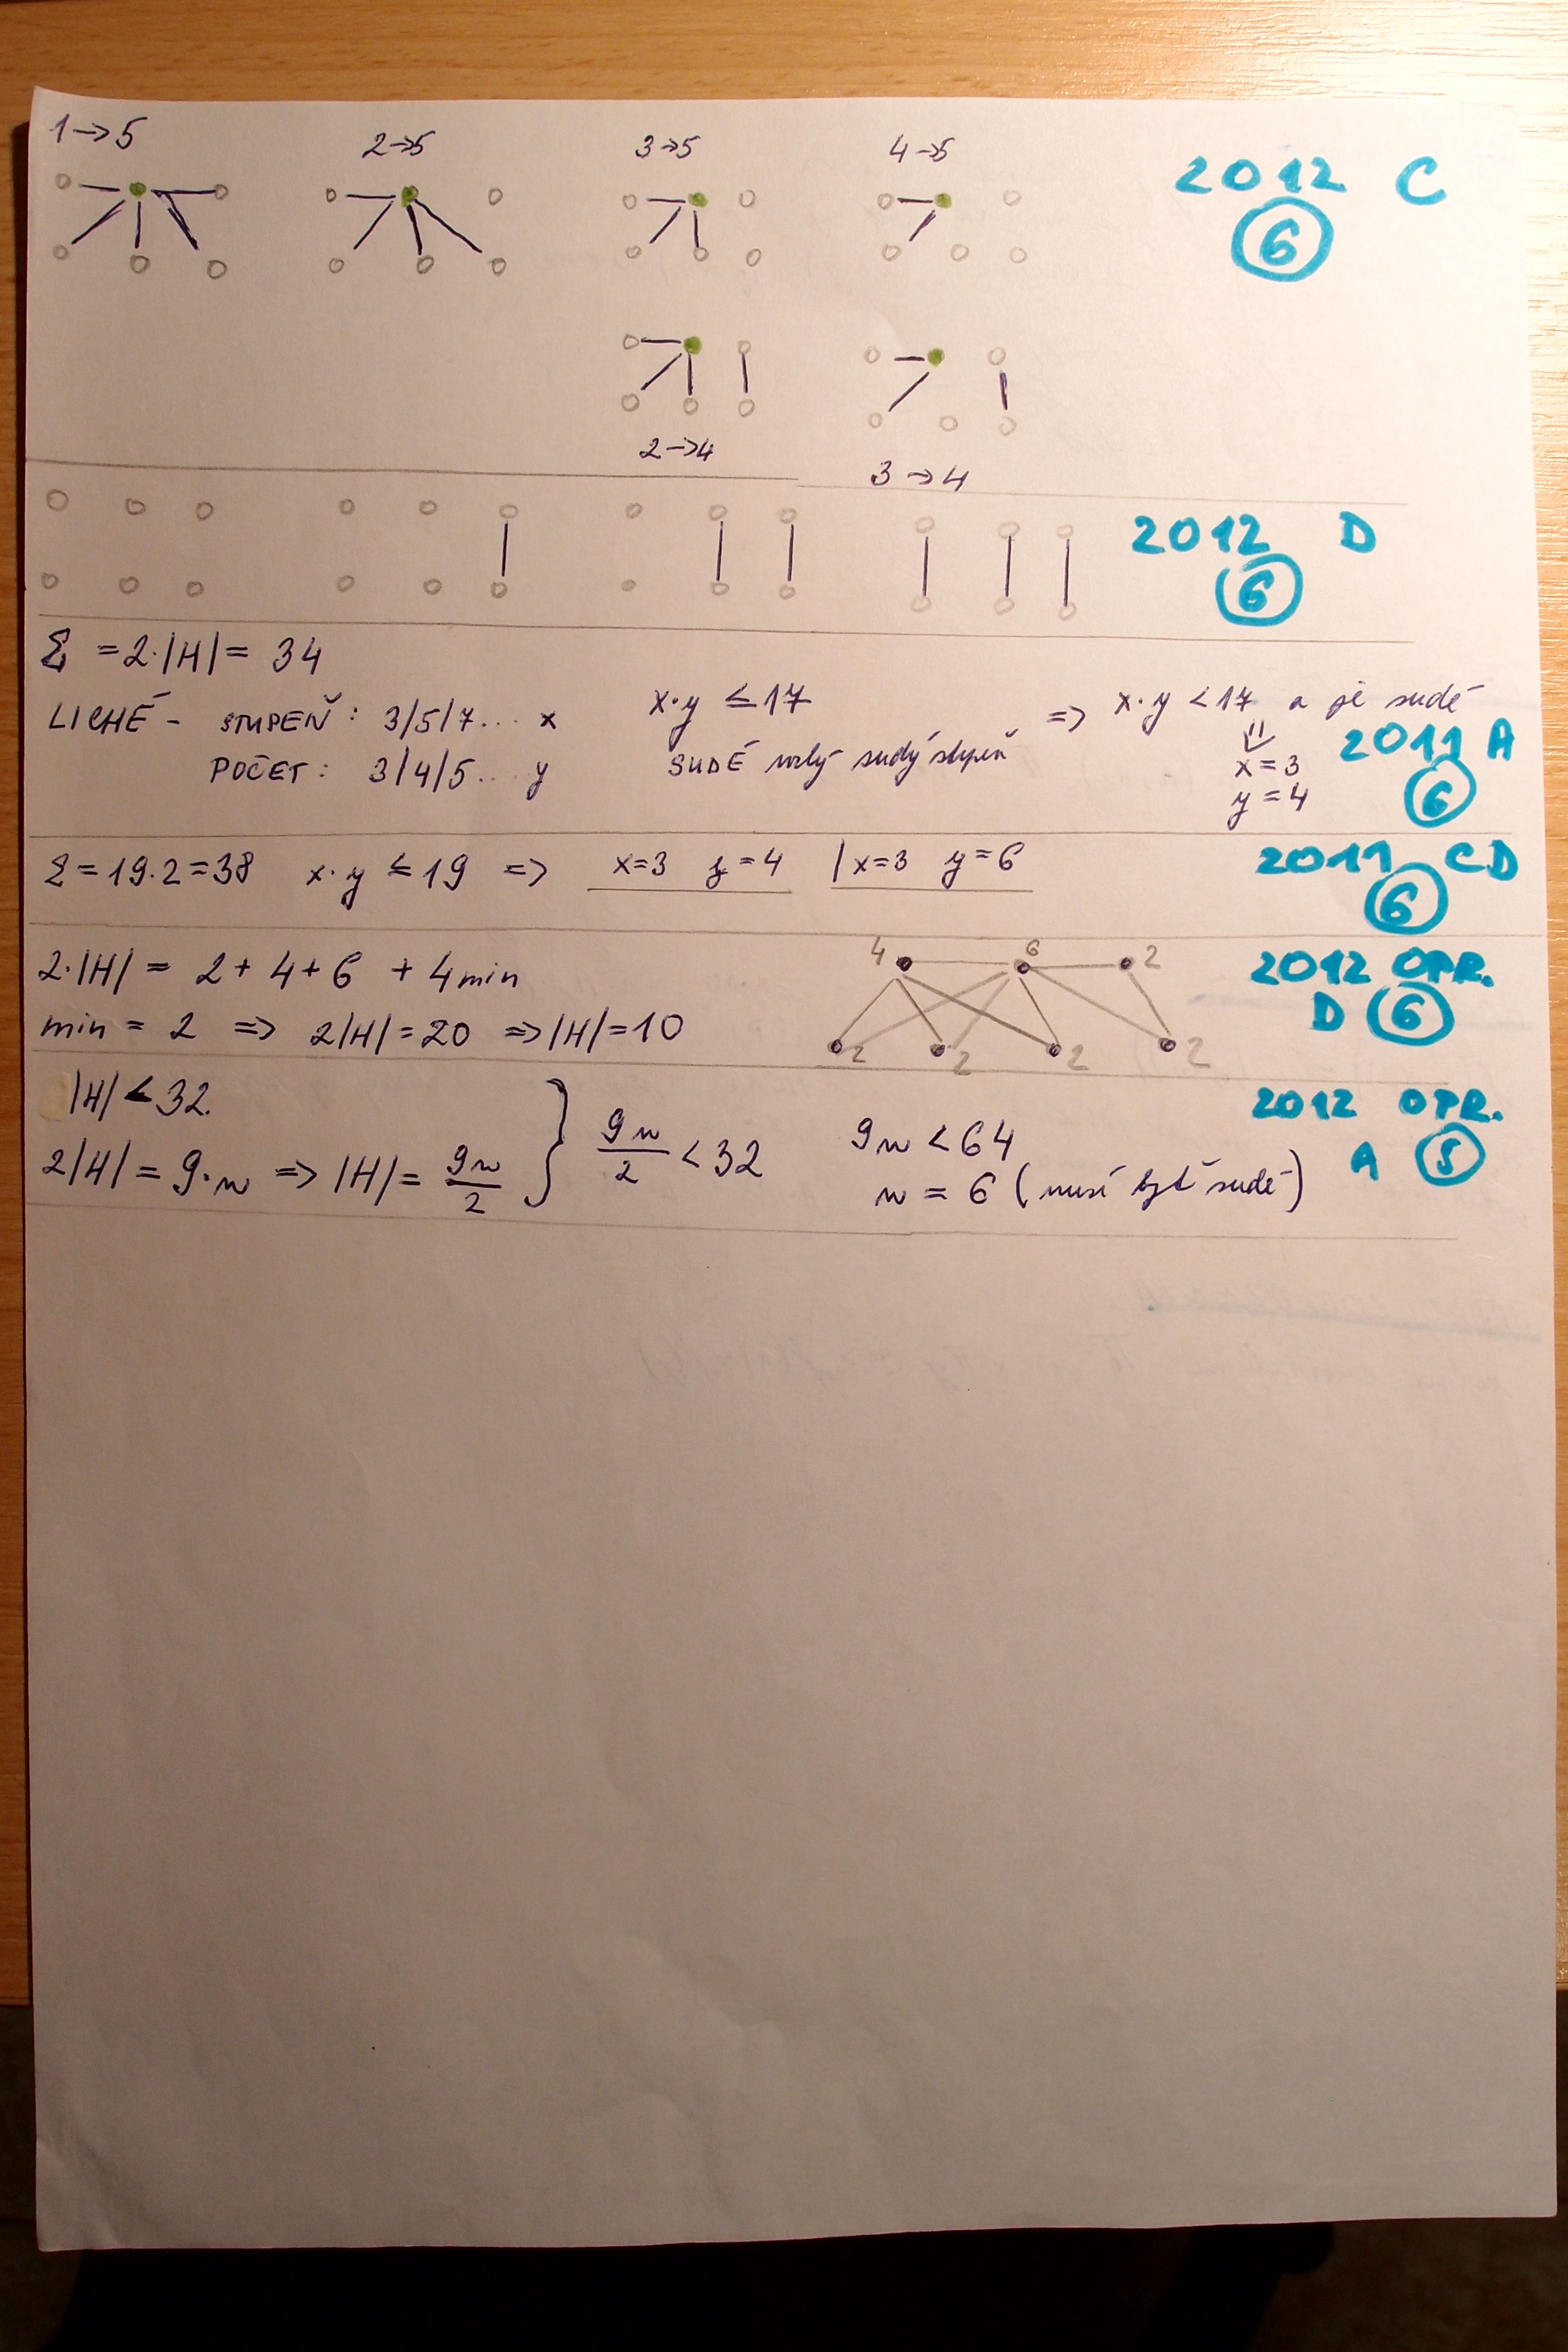 1→5 2→5 3→5 4→5
2012 C
6
2→4 3→4
2012 D
6
Σ = 2·|H| = 34
LICHÉ - STUPEŇ: 3/5/7... x
POČET: 3/4/5... y
x·y ≤ 17
SUDÉ uzly sudý stupeň
⇒ x·y < 17 a je sudé
⇓
x = 3
y = 4
2011 A
6
Σ = 19·2 = 38 x·y ≤ 19 ⇒ x=3 y=4 | x=3 y=6
2011 CD
6
2·|H| = 2 + 4 + 6 + 4min
min = 2 ⇒ 2|H| = 20 ⇒ |H| = 10
4 6 2
2 2 2 2
2012 OPR.
D 6
|H| < 32
2|H| = 9·n ⇒ |H| = 9n/2 } 9n/2 < 32
9n < 64
n = 6 (musí být sudé)
2012 OPR.
A 5